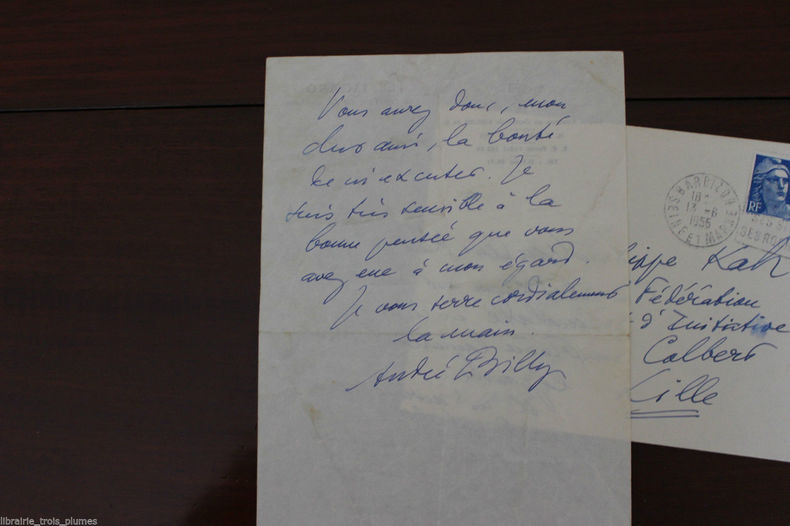 Vous aurez donc, mon
cher ami, la bonté
de m'excuser. Je
suis très sensible à la
bonne pensée que vous
avez eue à mon égard.
Je vous serre cordialement
la main.
André Billy
BARBIZON
SEINE ET MARNE
18
13 -6
1955
RF
ippe Kah
Fédération
d'Initiative
Colbert
Lille
librairie_trois_plumes